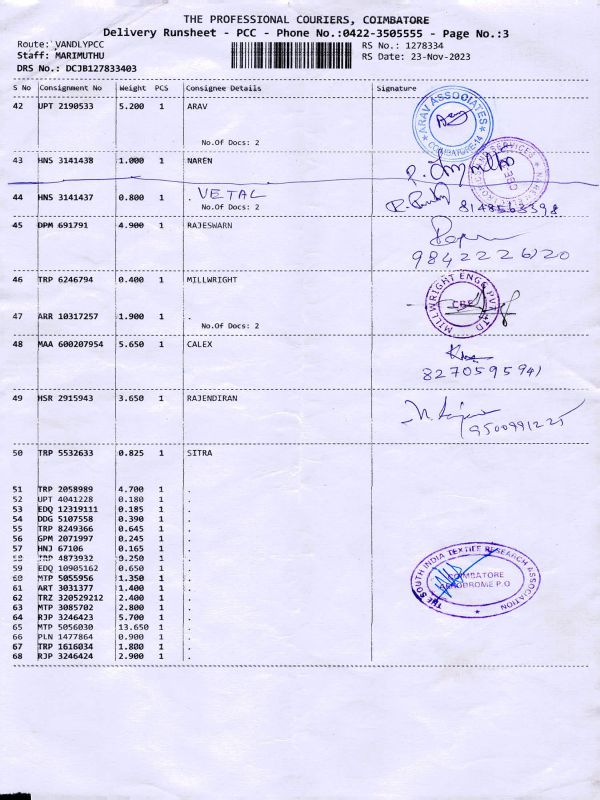 THE PROFESSIONAL COURIERS, COIMBATORE
Delivery Runsheet - PCC - Phone No.:0422-3505555 - Page No.:3
Route: VANDLYPCC
RS No.: 1278334
Staff: MARIMUTHU
RS Date: 23-Nov-2023
DRS No.: DCJB127833403
S No Consignment No Weight PCS Consignee Details Signature
42 UPT 2190533 5.200 1 ARAV
ARAV ASSOCIATES
COIMBATORE-14
No.Of Docs: 2
43 HNS 3141438 1.000 1 NAREN
CBE
44 HNS 3141437 0.800 1 . VETAL
8148563398
No.Of Docs: 2
45 DPM 691791 4.900 1 RAJESWARN
9842222620
46 TRP 6246794 0.400 1 MILLWRIGHT
MILLWRIGHT ENGG PVT LTD
CBE
47 ARR 10317257 1.900 1 .
No.Of Docs: 2
48 MAA 600207954 5.650 1 CALEX
8270595941
49 HSR 2915943 3.650 1 RAJENDIRAN
9500991225
50 TRP 5532633 0.825 1 SITRA
51 TRP 2058989 4.700 1 .
52 UPT 4041228 0.180 1 .
53 EDQ 12319111 0.185 1 .
54 DDG 5107558 0.390 1 .
55 TRP 8249366 0.645 1 .
56 GPM 2071997 0.245 1 .
57 HNJ 67106 0.165 1 .
58 TRP 4873932 0.250 1 .
59 EDQ 10905162 0.650 1 .
60 MTP 5055956 1.350 1 .
61 ART 3031377 1.400 1 .
62 TRZ 320529212 2.400 1 .
63 MTP 3085702 2.800 1 .
64 RJP 3246423 5.700 1 .
65 MTP 5056030 13.650 1 .
66 PLN 1477864 0.900 1 .
67 TRP 1616034 1.800 1 .
68 RJP 3246424 2.900 1 .
THE SOUTH INDIA TEXTILE RESEARCH ASSOCIATION
COIMBATORE
AERODROME P.O